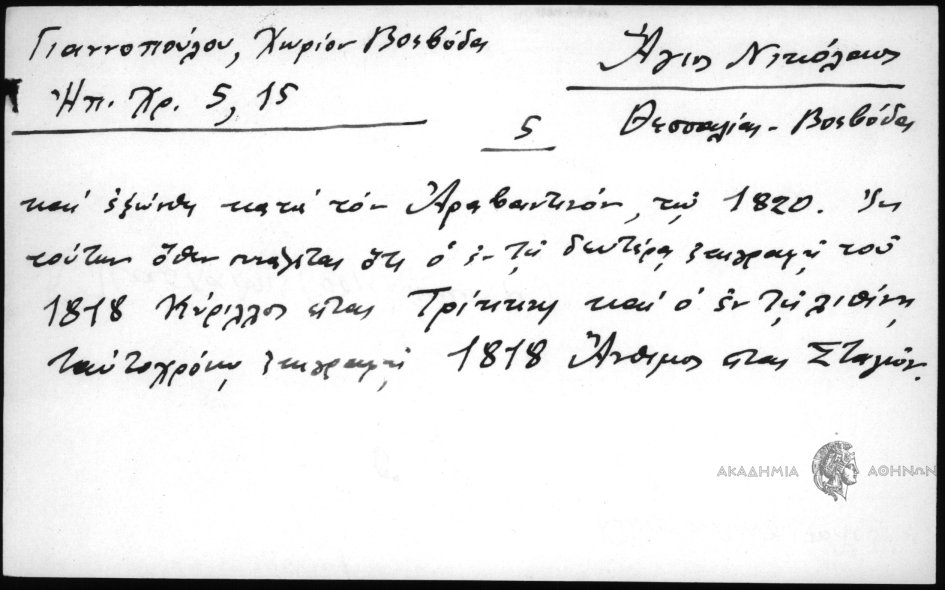 Γιαννοπούλου, Χωρίον Βοεβόδα
Ἠπ. Χρ. 5, 15
Ἅγιος Νικόλαος
5
Θεσσαλίας - Βοεβόδα
καί ἐξώσθη κατά τόν Ἀραβαντινόν, τῷ 1820. Ἐκ
τούτων ὅθεν συνάγεται ὅτι ὁ ἐν τῇ δευτέρᾳ ἐπιγραφῇ τοῦ
1818 Κύριλλος εἶναι Τρίκκης καί ὁ ἐν τῇ λιθίνῃ
ταὐτοχρόνῳ ἐπιγραφῇ 1818 Ἄνθιμος εἶναι Σταγῶν.
ΑΚΑΔΗΜΙΑ ΑΘΗΝΩΝ